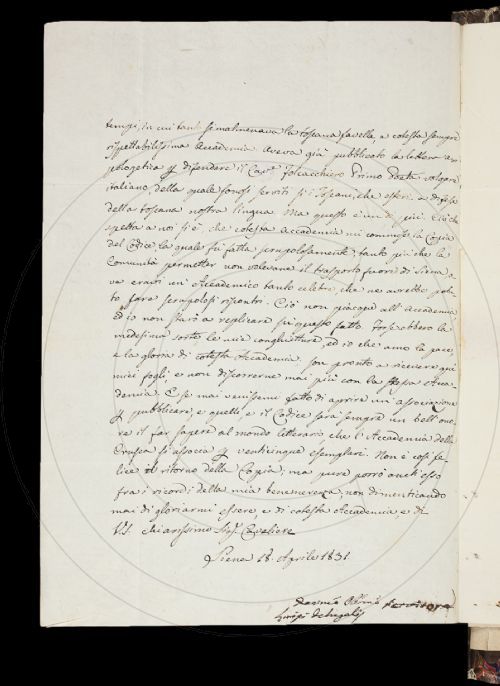 tempi, in cui tanto si malmenava la toscana favella a cotesta sempre
rispettabilissima Accademia. Aveva già pubblicato la lettera
pologetica p difendere il Folcacchiero Primo Poeta volgare
italiano, della quale sonosi serviti sì i Toscani, che esteri a difesa
della toscana nostra lingua. Ma questo è un di più. Ciò che
spetta a noi si è, che cotesta Accademia mi commise la Copia
del Codice, la quale fu fatta scrupolosamente, tanto più che la
Comunità permetter non voleva il trasporto fuori di Siena, o-
ve eravi un Accademico tanto celebre, che ne avrebbe potu-
to fare scrupolosi riscontri. Ciò non piacque all'Accademia
ed io non starò a replicare su questo fatto. Forse ebbero la
medesima sorte le mie conghietture, ed io che amo la pace,
e la gloria di cotesta Accademia son pronto a ricevere i
miei fogli, e non discorrerne mai più con la stessa Acca-
demia. E se mai venissemi fatto di aprire un associazione
p pubblicare, e quelli e il Codice sarà sempre un bell'ono-
re il far sapere al mondo letterario, che l'Accademia della
Crusca si associa p venticinque esemplari. Non è così fe-
lice il ritorno della Copia; ma pure porrò anch'esso
fra i ricordi della mia benemerenza, non dimenticando
mai di gloriarmi essere, e di cotesta Accademia e di
V.S. chiarissimo Sig. Cavaliere
Siena 18. Aprile 1831
Servitore
Luigi De Angelis